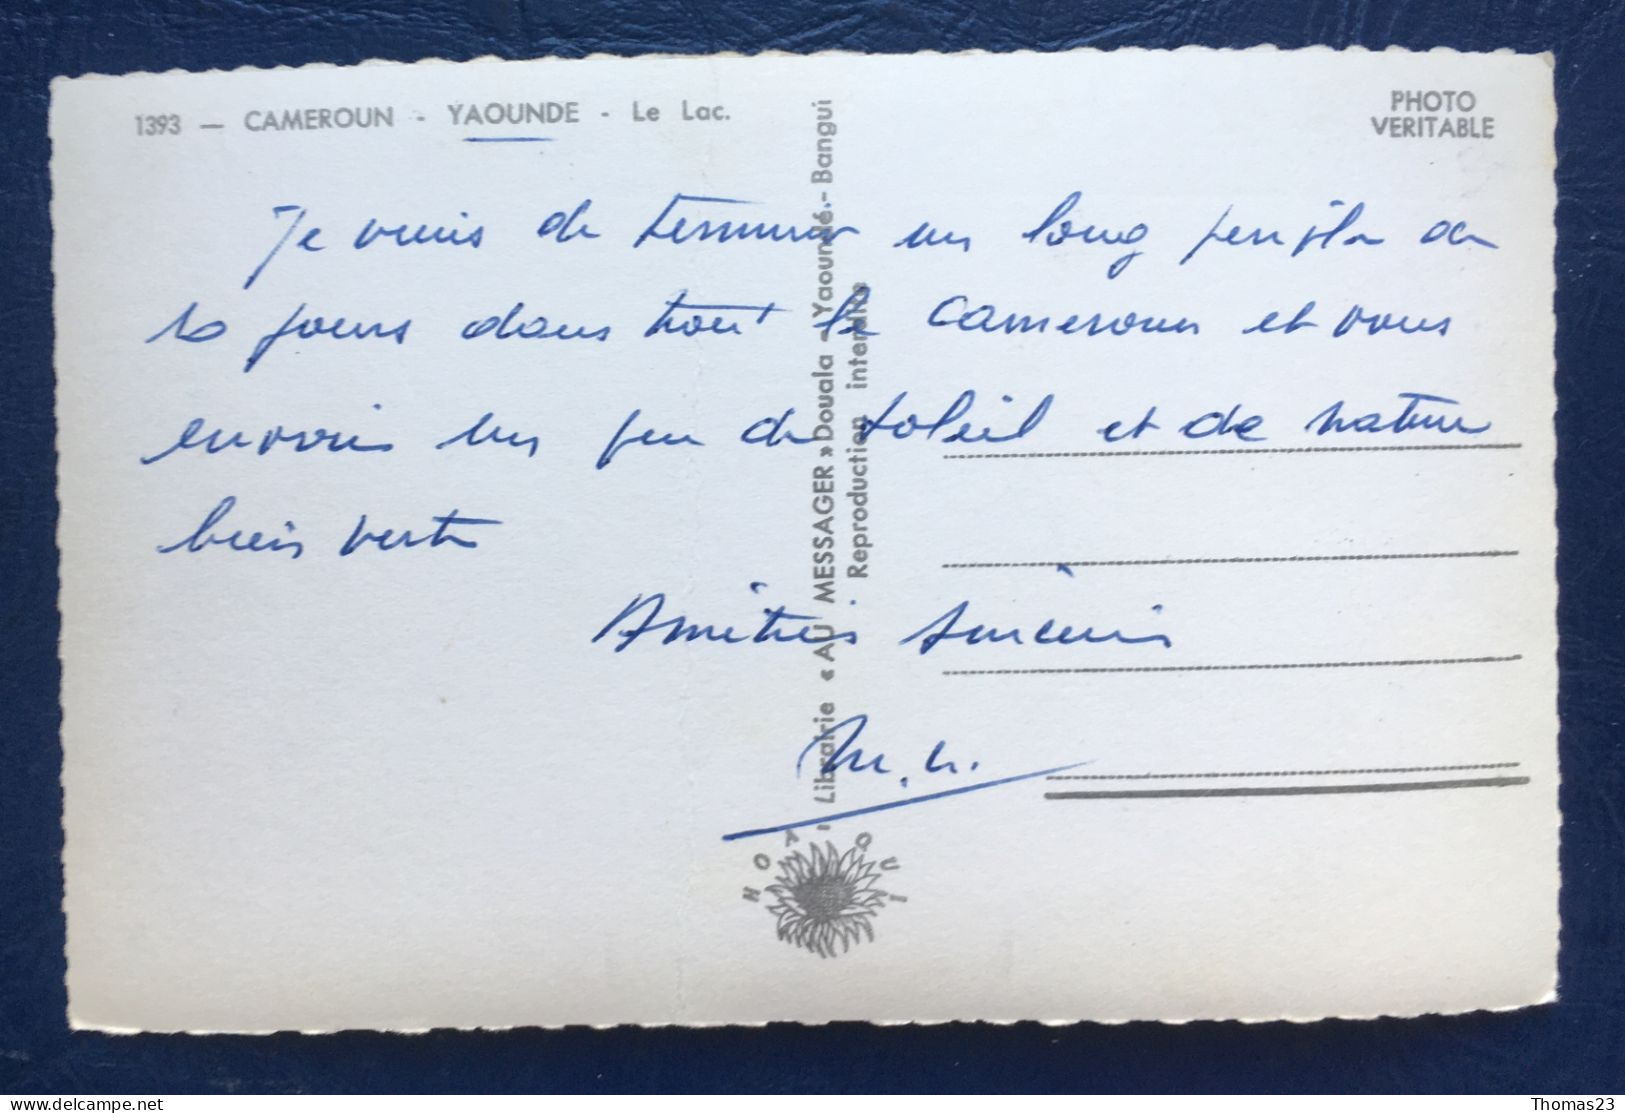 1393 — CAMEROUN - YAOUNDE - Le Lac.
PHOTO
VERITABLE
Je viens de terminer un long périple de
10 jours dans tout le Cameroun et vous
envoie un peu de soleil et de nature
bien verte
Amitiés sincères
Librairie « AU MESSAGER » Douala - Yaoundé - Bangui
Reproduction interdite
HOA-QUI
Thomas23